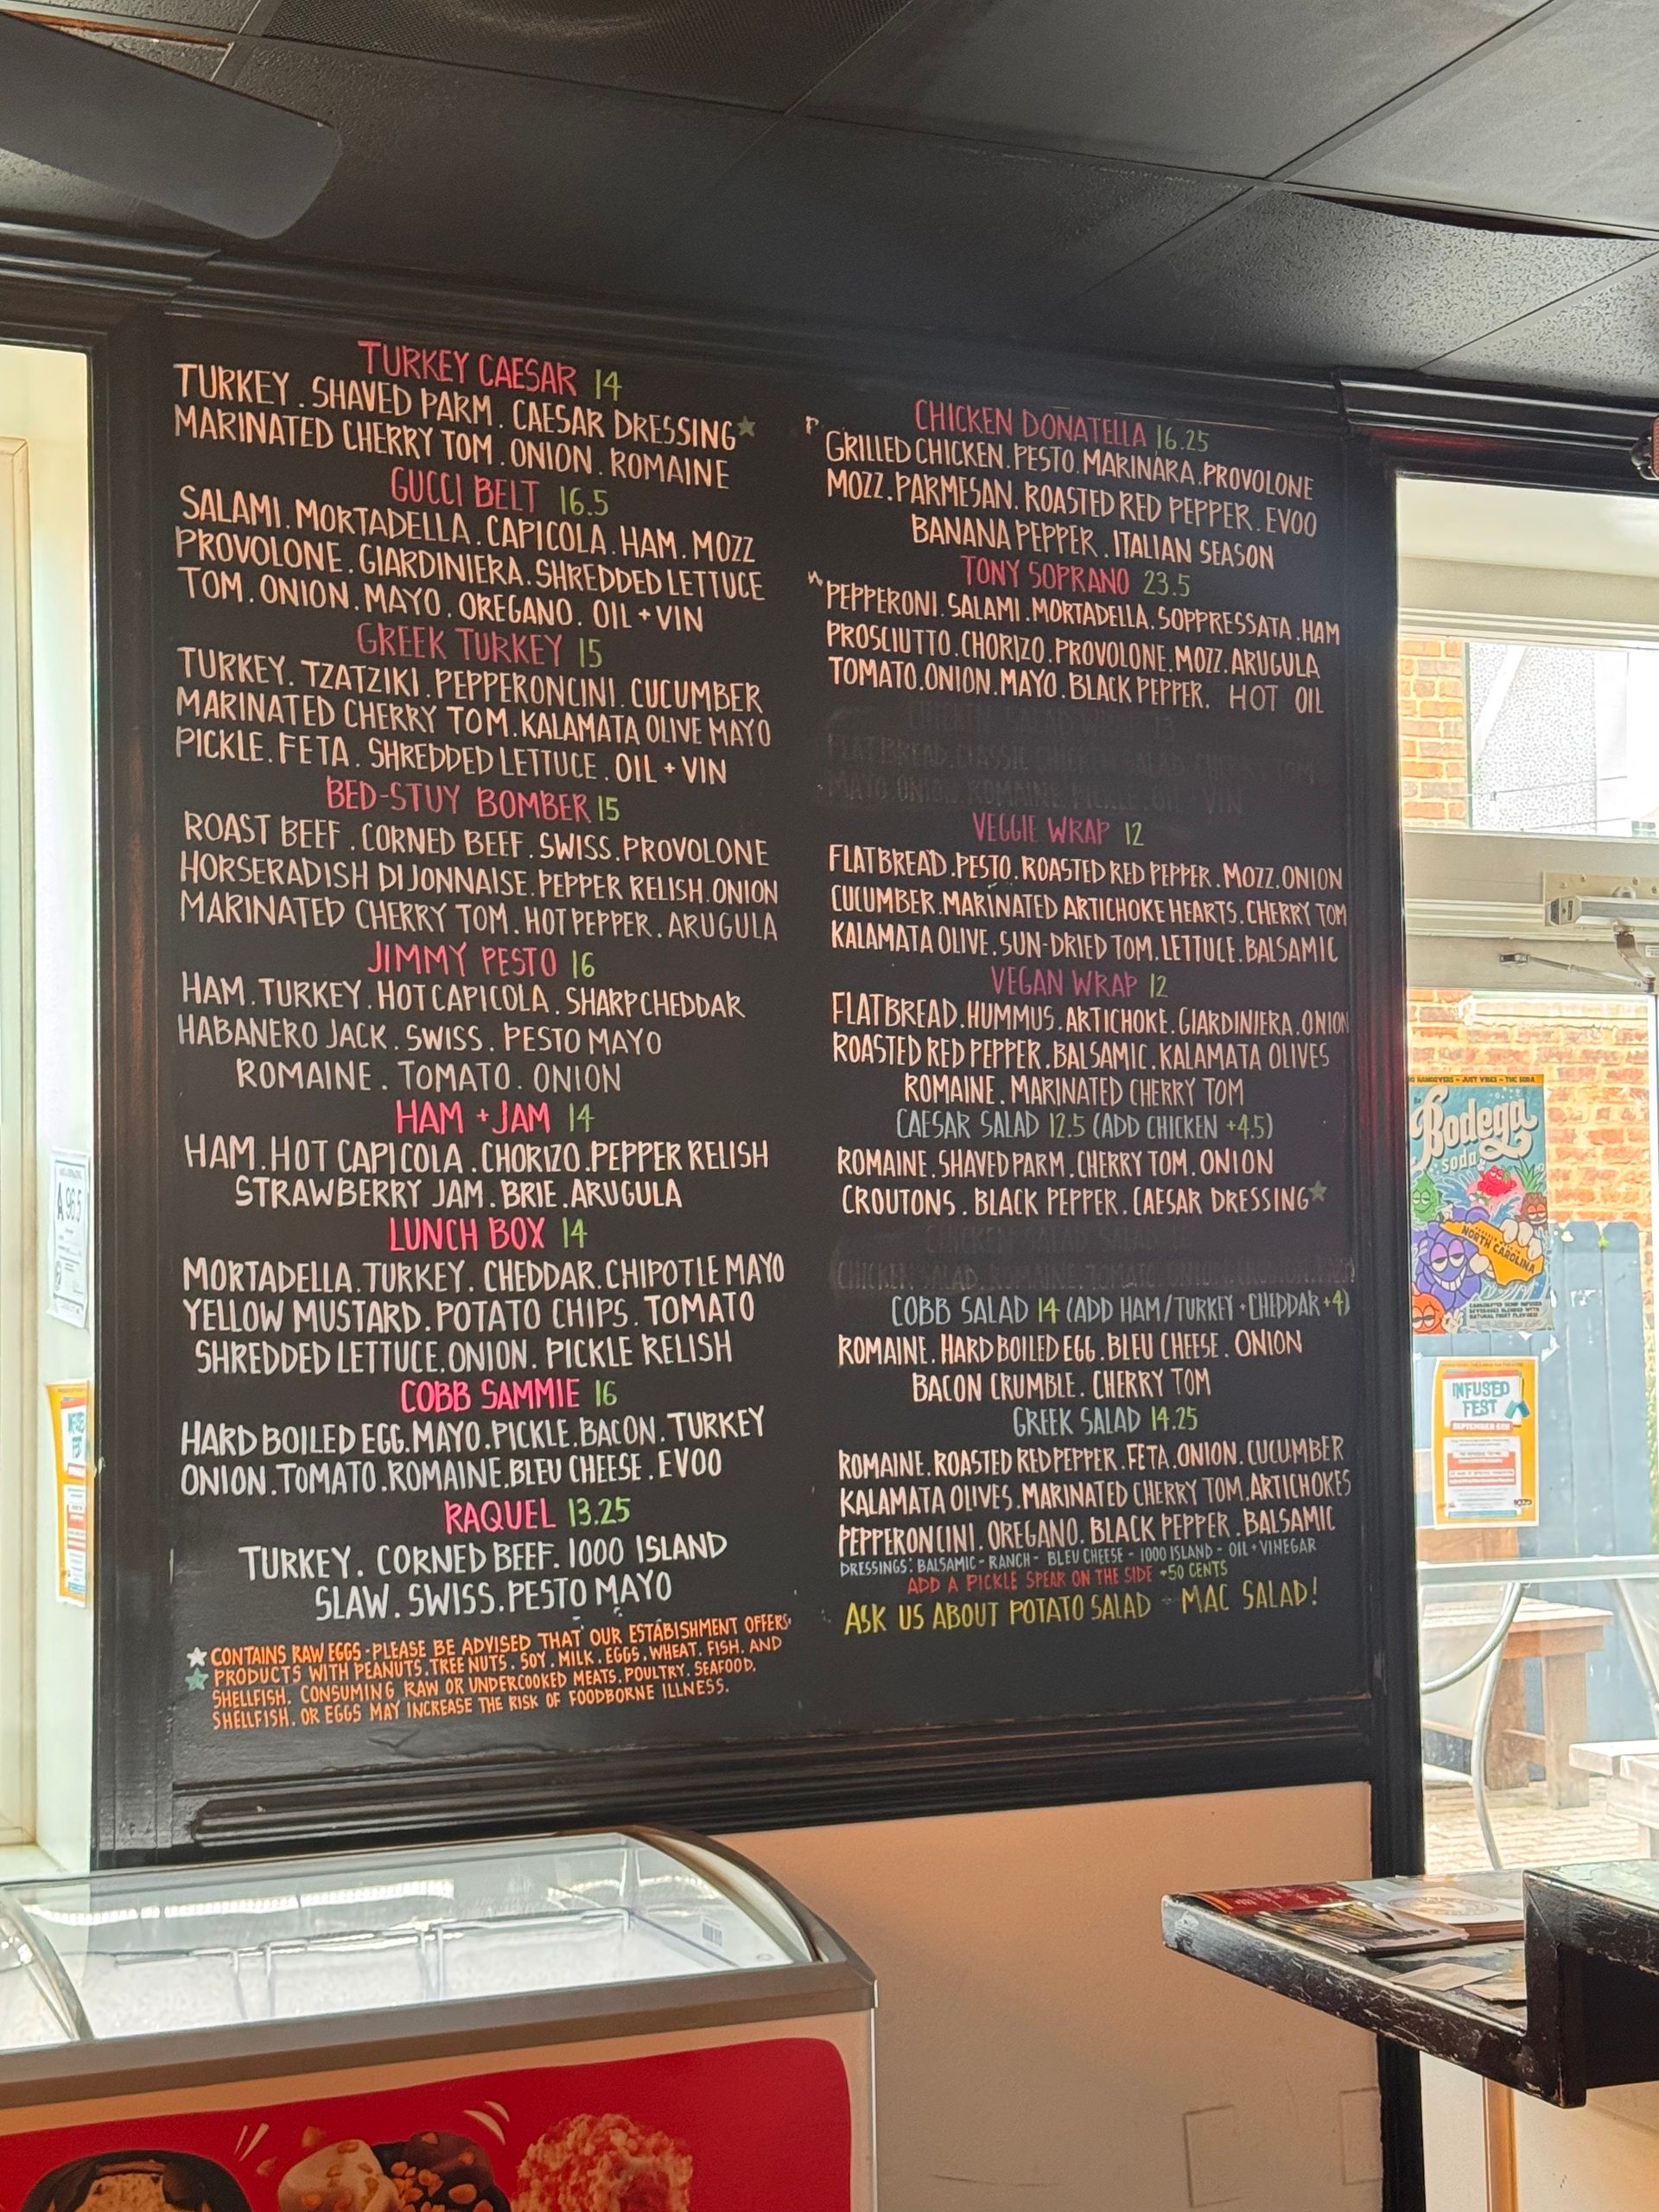 TURKEY CAESAR 14
TURKEY . SHAVED PARM . CAESAR DRESSING★
MARINATED CHERRY TOM . ONION . ROMAINE
GUCCI BELT 16.5
SALAMI . MORTADELLA . CAPICOLA . HAM . MOZZ
PROVOLONE . GIARDINIERA . SHREDDED LETTUCE
TOM . ONION . MAYO . OREGANO . OIL + VIN
GREEK TURKEY 15
TURKEY . TZATZIKI . PEPPERONCINI . CUCUMBER
MARINATED CHERRY TOM . KALAMATA OLIVE MAYO
PICKLE . FETA . SHREDDED LETTUCE . OIL + VIN
BED-STUY BOMBER 15
ROAST BEEF . CORNED BEEF . SWISS . PROVOLONE
HORSERADISH DIJONNAISE . PEPPER RELISH . ONION
MARINATED CHERRY TOM . HOT PEPPER . ARUGULA
JIMMY PESTO 16
HAM . TURKEY . HOT CAPICOLA . SHARP CHEDDAR
HABANERO JACK . SWISS . PESTO MAYO
ROMAINE . TOMATO . ONION
HAM + JAM 14
HAM . HOT CAPICOLA . CHORIZO . PEPPER RELISH
STRAWBERRY JAM . BRIE . ARUGULA
LUNCH BOX 14
MORTADELLA . TURKEY . CHEDDAR . CHIPOTLE MAYO
YELLOW MUSTARD . POTATO CHIPS . TOMATO
SHREDDED LETTUCE . ONION . PICKLE RELISH
COBB SAMMIE 16
HARD BOILED EGG . MAYO . PICKLE . BACON . TURKEY
ONION . TOMATO . ROMAINE . BLEU CHEESE . EVOO
RAQUEL 13.25
TURKEY . CORNED BEEF . 1000 ISLAND
SLAW . SWISS . PESTO MAYO
★ CONTAINS RAW EGGS - PLEASE BE ADVISED THAT OUR ESTABISHMENT OFFERS
★ PRODUCTS WITH PEANUTS . TREE NUTS . SOY . MILK . EGGS . WHEAT . FISH . AND
SHELLFISH . CONSUMING RAW OR UNDERCOOKED MEATS, POULTRY, SEAFOOD,
SHELLFISH, OR EGGS MAY INCREASE THE RISK OF FOODBORNE ILLNESS.
CHICKEN DONATELLA 16.25
GRILLED CHICKEN . PESTO . MARINARA . PROVOLONE
MOZZ . PARMESAN . ROASTED RED PEPPER . EVOO
BANANA PEPPER . ITALIAN SEASON
TONY SOPRANO 23.5
PEPPERONI . SALAMI . MORTADELLA . SOPPRESSATA . HAM
PROSCIUTTO . CHORIZO . PROVOLONE . MOZZ . ARUGULA
TOMATO . ONION . MAYO . BLACK PEPPER . HOT OIL
CHICKEN SALAD WRAP 13
FLATBREAD . CLASSIC CHICKEN SALAD . CHERRY TOM
MAYO . ONION . ROMAINE . PICKLE . OIL + VIN
VEGGIE WRAP 12
FLATBREAD . PESTO . ROASTED RED PEPPER . MOZZ . ONION
CUCUMBER . MARINATED ARTICHOKE HEARTS . CHERRY TOM
KALAMATA OLIVE . SUN-DRIED TOM . LETTUCE . BALSAMIC
VEGAN WRAP 12
FLATBREAD . HUMMUS . ARTICHOKE . GIARDINIERA . ONION
ROASTED RED PEPPER . BALSAMIC . KALAMATA OLIVES
ROMAINE . MARINATED CHERRY TOM
CAESAR SALAD 12.5 (ADD CHICKEN +4.5)
ROMAINE . SHAVED PARM . CHERRY TOM . ONION
CROUTONS . BLACK PEPPER . CAESAR DRESSING★
CHICKEN SALAD SALAD
CHICKEN SALAD . ROMAINE . TOMATO
COBB SALAD 14 (ADD HAM/TURKEY + CHEDDAR +4)
ROMAINE . HARD BOILED EGG . BLEU CHEESE . ONION
BACON CRUMBLE . CHERRY TOM
GREEK SALAD 14.25
ROMAINE . ROASTED RED PEPPER . FETA . ONION . CUCUMBER
KALAMATA OLIVES . MARINATED CHERRY TOM . ARTICHOKES
PEPPERONCINI . OREGANO . BLACK PEPPER . BALSAMIC
DRESSINGS: BALSAMIC - RANCH - BLEU CHEESE - 1000 ISLAND - OIL + VINEGAR
ADD A PICKLE SPEAR ON THE SIDE +50 CENTS
ASK US ABOUT POTATO SALAD + MAC SALAD!
A 96.5
NO HANGOVERS - JUST VIBES - THC SODA
Bodega
soda
NORTH CAROLINA
INFUSED
FEST
SEPTEMBER 6TH